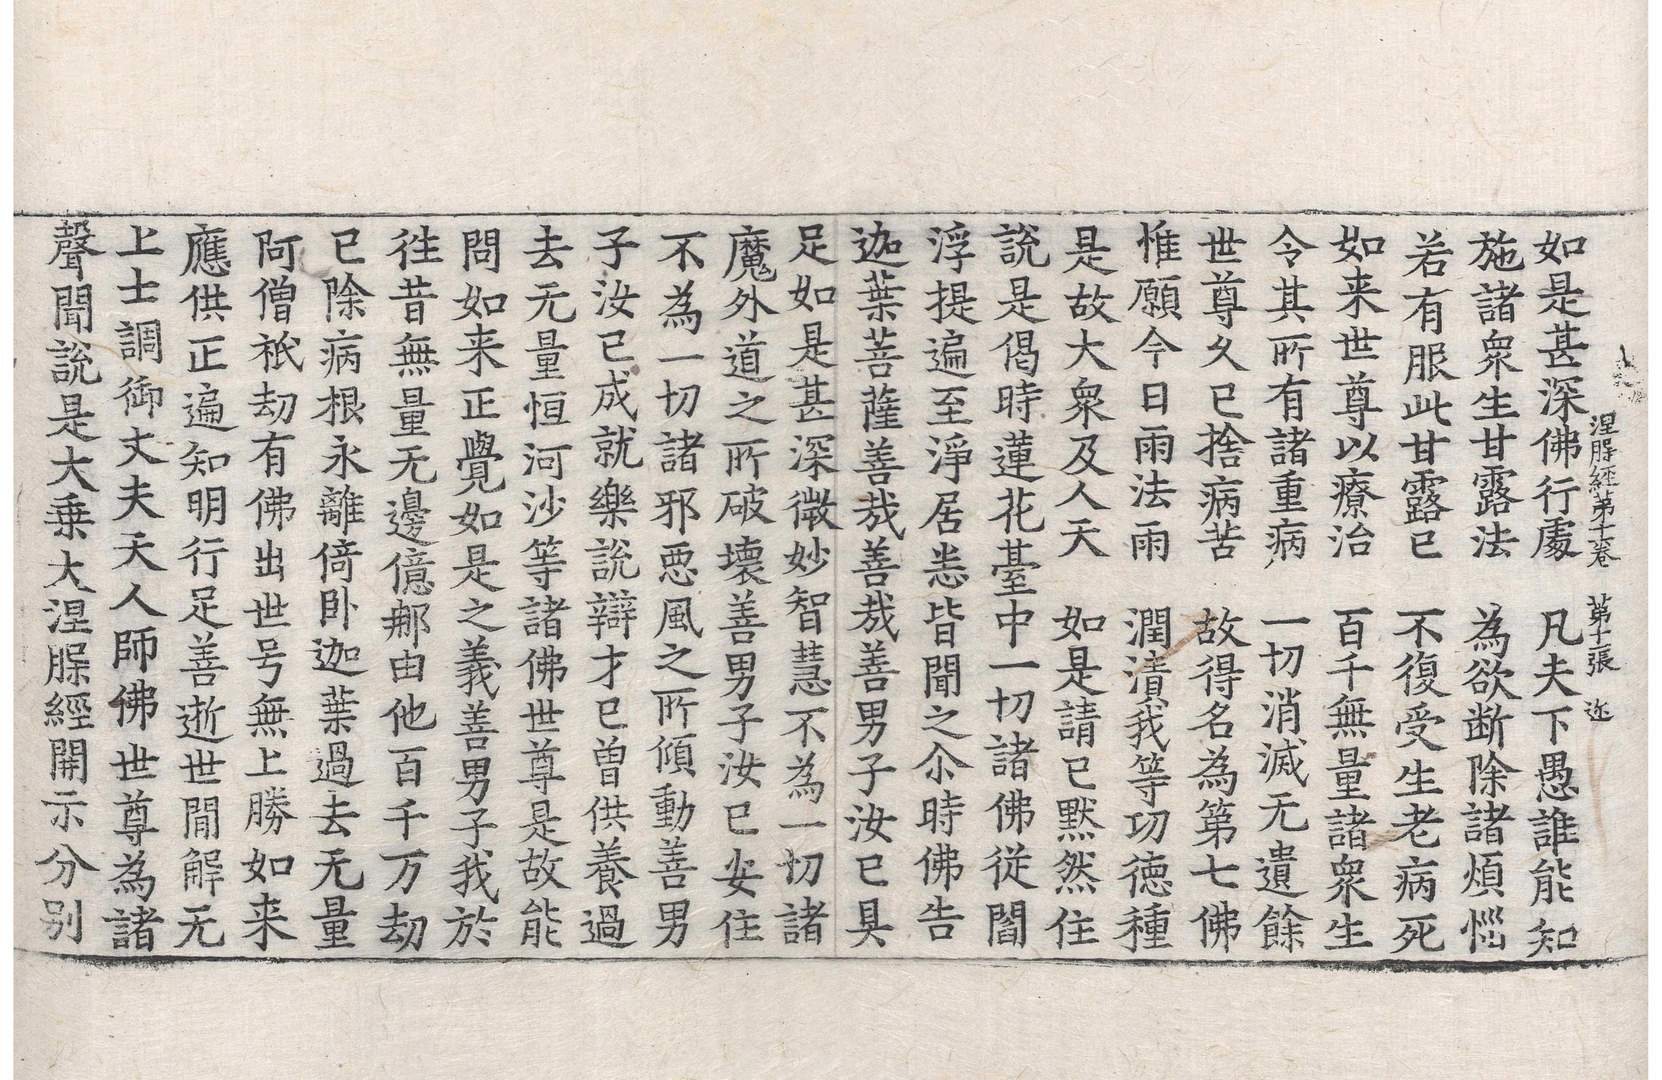 涅脵經第十卷　第十二張　迩
如是甚深佛行處　凡夫下愚誰能知
施諸衆生甘露法　為欲断除諸煩惱
若有服此甘露已　不復受生老病死
如来世尊以療治　百千無量諸衆生
令其所有諸重病　一切消滅无遺餘
世尊久已捨病苦　故得名為第七佛
惟願今日雨法雨　潤漬我等功德種
是故大衆及人天　如是請已默然住
說是偈時蓮花臺中一切諸佛従閻
浮提遍至淨居悉皆聞之尒時佛告
迦葉菩薩善㦲善㦲善男子汝已具
足如是甚深微妙智慧不為一切諸
魔外道之所破壞善男子汝已安住
不為一切諸邪惡風之所傾動善男
子汝已成就樂說辯才已曽供養過
去无量恒河沙等諸佛世尊是故能
問如来正覺如是之義善男子我於
往昔無量无邊億那由他百千万劫
已除病根永離倚卧迦葉過去无量
阿僧祇劫有佛出世号無上勝如来
應供正遍知明行足善逝世間解无
上士調御丈夫天人師佛世尊為諸
聲聞說是大乗大涅脵經開示分别